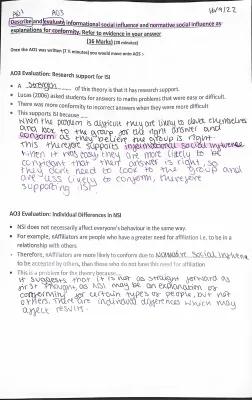 AO1 AO3 14/9/22
Describe and evaluate informational social influence and normative social influence as
explanations for conformity. Refer to evidence in your answer
(16 Marks) (20 minutes)
Once the AO1 was written (7 ½ minutes) you would move onto AO3 :-
AO3 Evaluation: Research support for ISI
• A strength of this theory is that it has research support.
• Lucas (2006) asked students for answers to maths problems that were easy or difficult.
• There was more conformity to incorrect answers when they were more difficult
• This supports ISI because
when the problem is difficult they are likely to doubt themselves
and look to the group for the right answer and
conform as they believe the group is right.
This therefore supports informational social influence
When it was easy they are more likely to be
confident that their answer is right, so
they don't need to look to the group and
are less likely to conform, therefore
supporting ISI
AO3 Evaluation: Individual Differences in NSI
• NSI does not necessarily affect everyone's behaviour in the same way.
• For example, nAffiliators are people who have a greater need for affiliation i.e. to be in a
relationship with others.
• Therefore, nAffiliators are more likely to conform due to Normative Social Influence
to be accepted by others, then those who do not have this need for affiliation
• This is a problem for the theory because
it suggests that it is not as straight forward as
first thought, as NSI may be an explanation of
conformity for certain types of people, but not
others. There are individual differences which may
affect results.